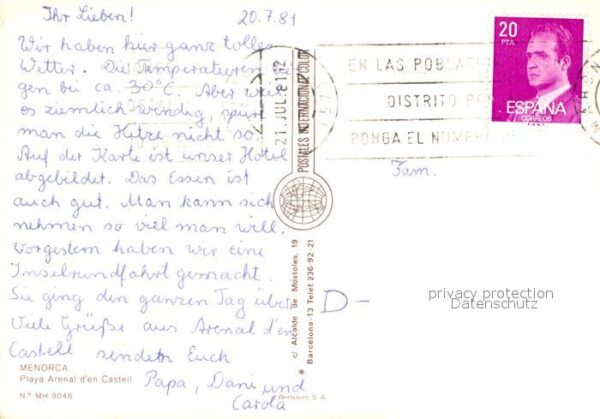 Ihr Lieben! 20.7.81
Wir haben hier ganz tolles
Wetter. Die Temperaturen lie-
gen bei ca. 30°C. Aber weil
es ziemlich windig, spürt
man die Hitze nicht so.
Auf der Karte ist unser Hotel
abgebildet. Das Essen ist
auch gut. Man kann sich
nehmen so viel man will.
Vorgestern haben wir eine
Inselrundfahrt gemacht.
Sie ging den ganzen Tag über.
Viele Grüße aus Arenal d'en
Castell senden Euch
Papa, Dani und
Carola
MENORCA
Playa Arenal d'en Castell
N° MH 9046
POSTALES INTERNACIONAL COLOR
c/ Alcalde de Móstoles, 19
Barcelona-13 Telef. 236-92-21
Vertícrom S. A.
21 JUL
EN LAS POBLACI
DISTRITO PO
PONGA EL NUMER
20
PTA
ESPAÑA
CORREOS
Fam.
D-
privacy protection
Datenschutz